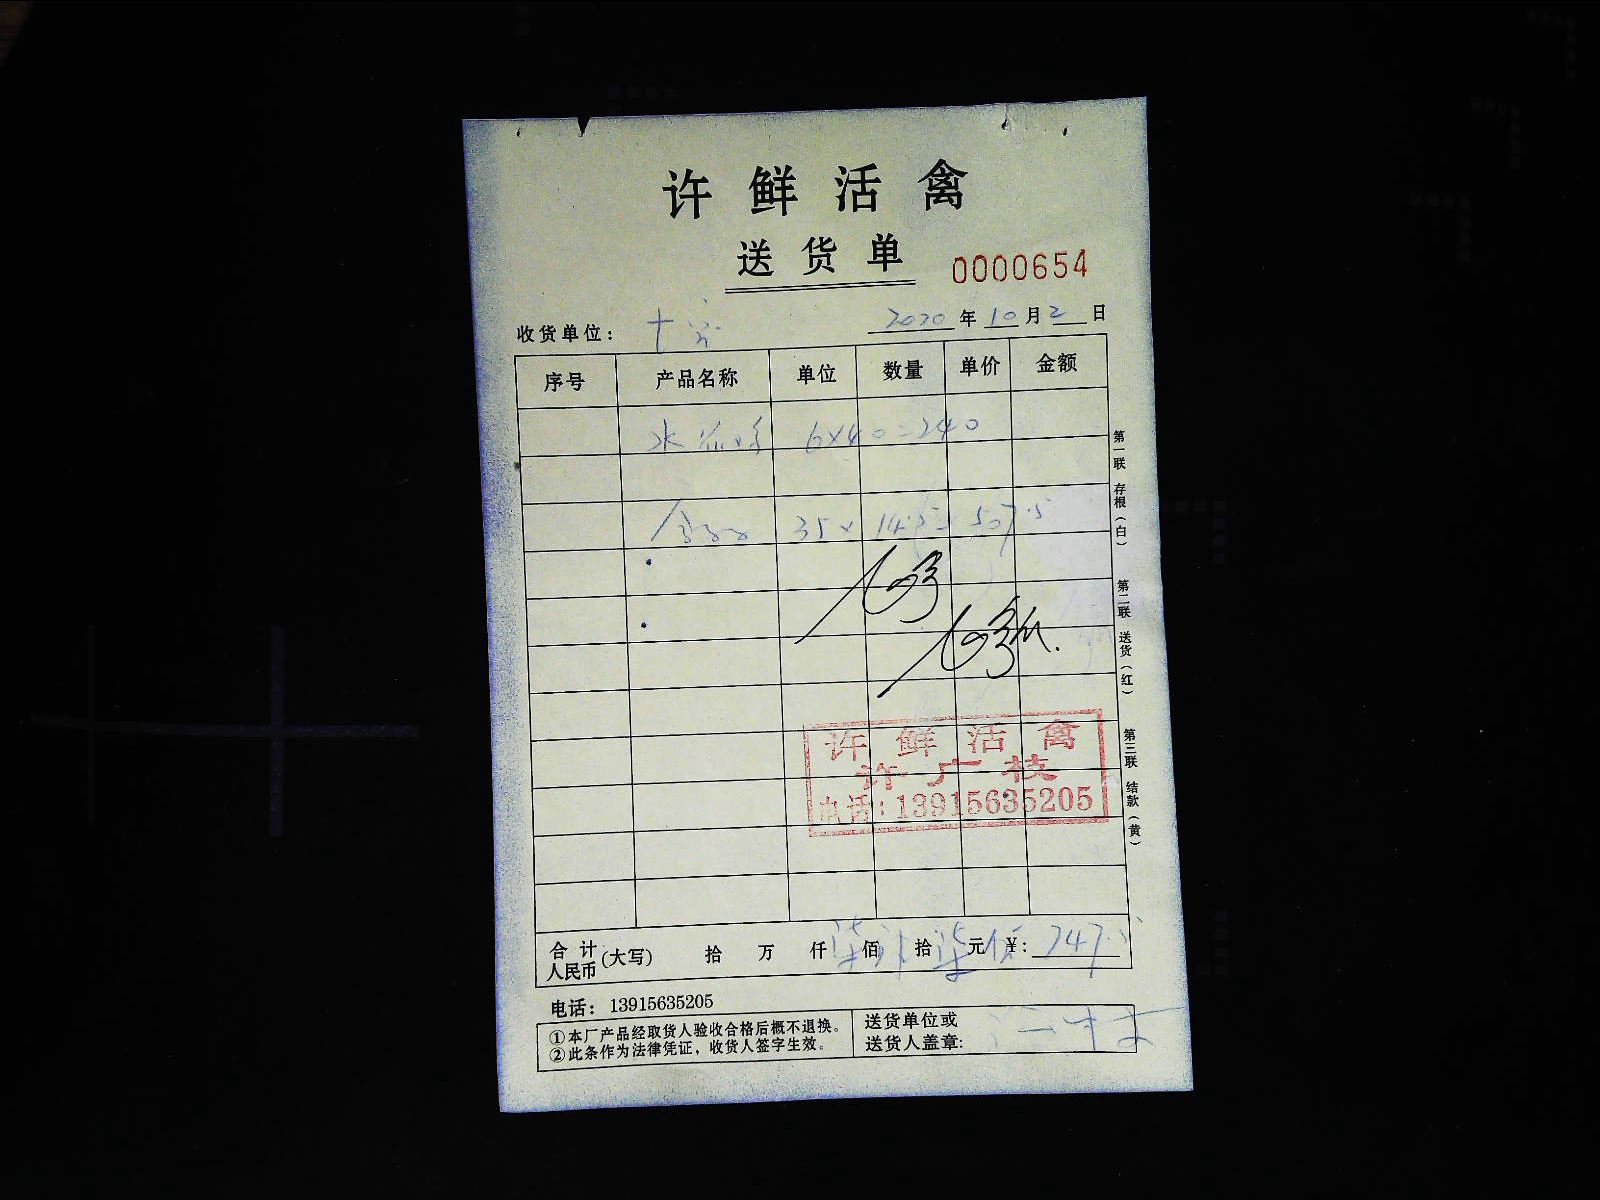 许鲜活禽
送货单
0000654
收货单位：
2020年10月2日
序号 产品名称 单位 数量 单价 金额
水 6×40=240
35×14.5=507.5
第一联 存根（白）
第二联 送货（红）
第三联 结款（黄）
许鲜活禽
许广枝
电话：13915635205
合计人民币(大写) 拾 万 仟 柒佰 拾柒元 ¥：747.
电话：13915635205
①本厂产品经取货人验收合格后概不退换。
②此条作为法律凭证，收货人签字生效。
送货单位或
送货人盖章：